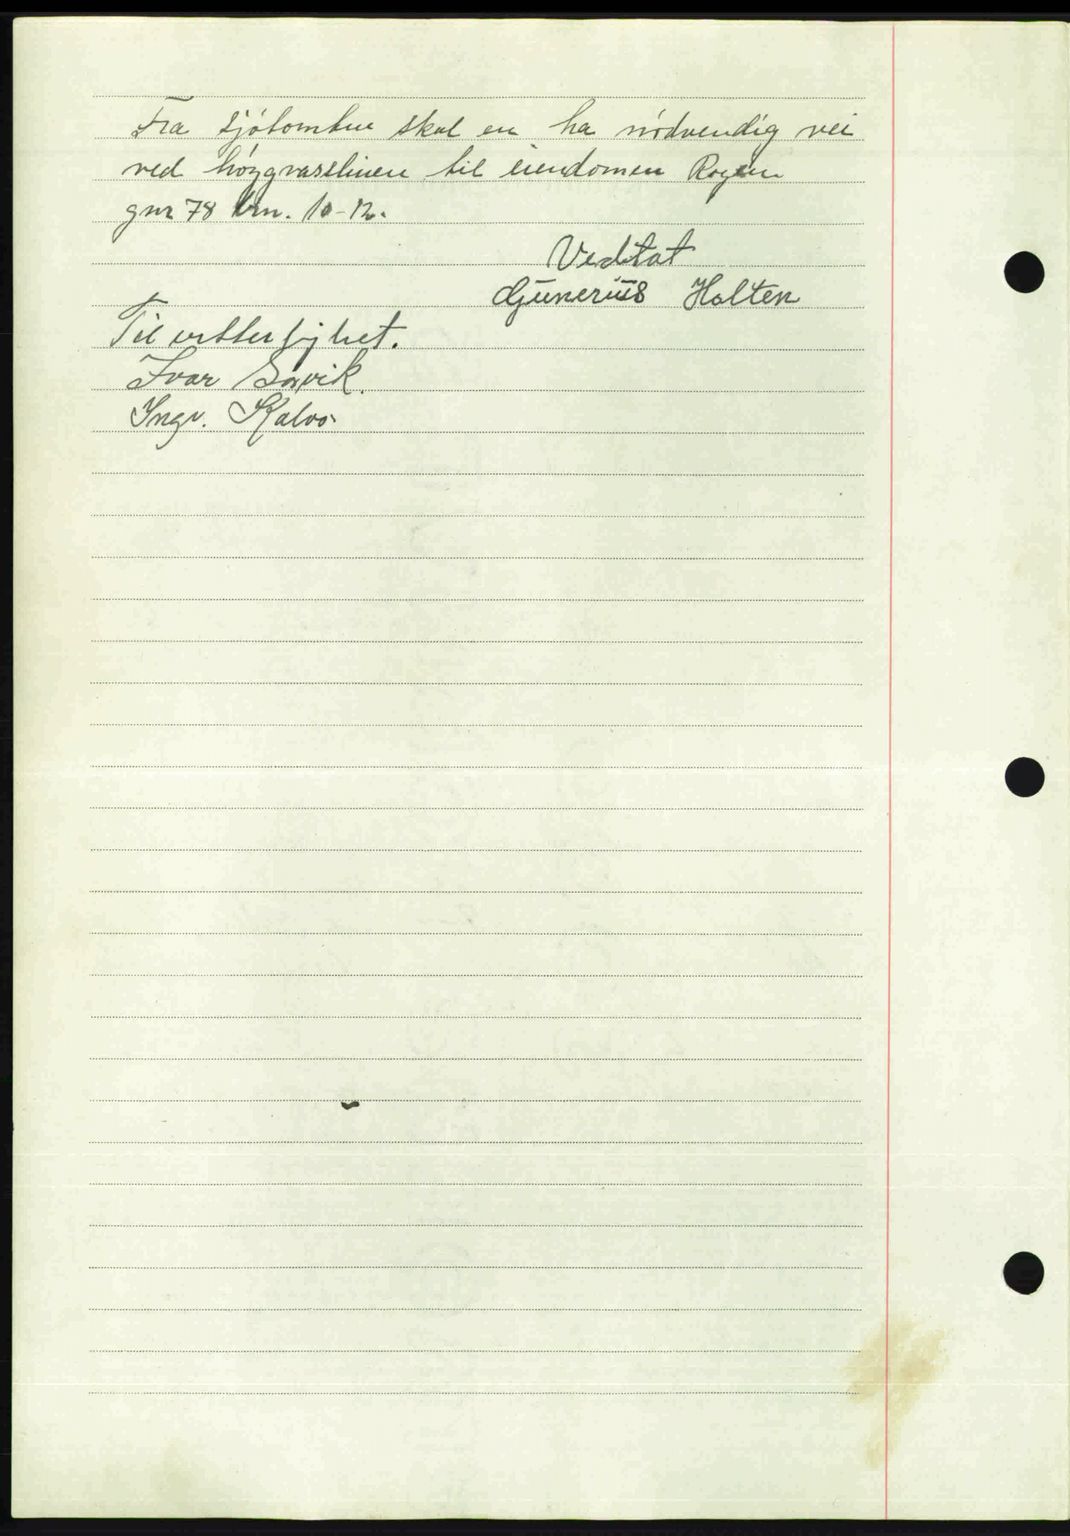 Fra sjótomten skal en ha nódvendig vei
ved hóggvasslinen til eiendomen Rogen
gnr 78 brn. 10-12.
Vedtat
Gunerius Holten
Til vitterlighet.
Ivar Sørvik.
Ingv. Kalvø.